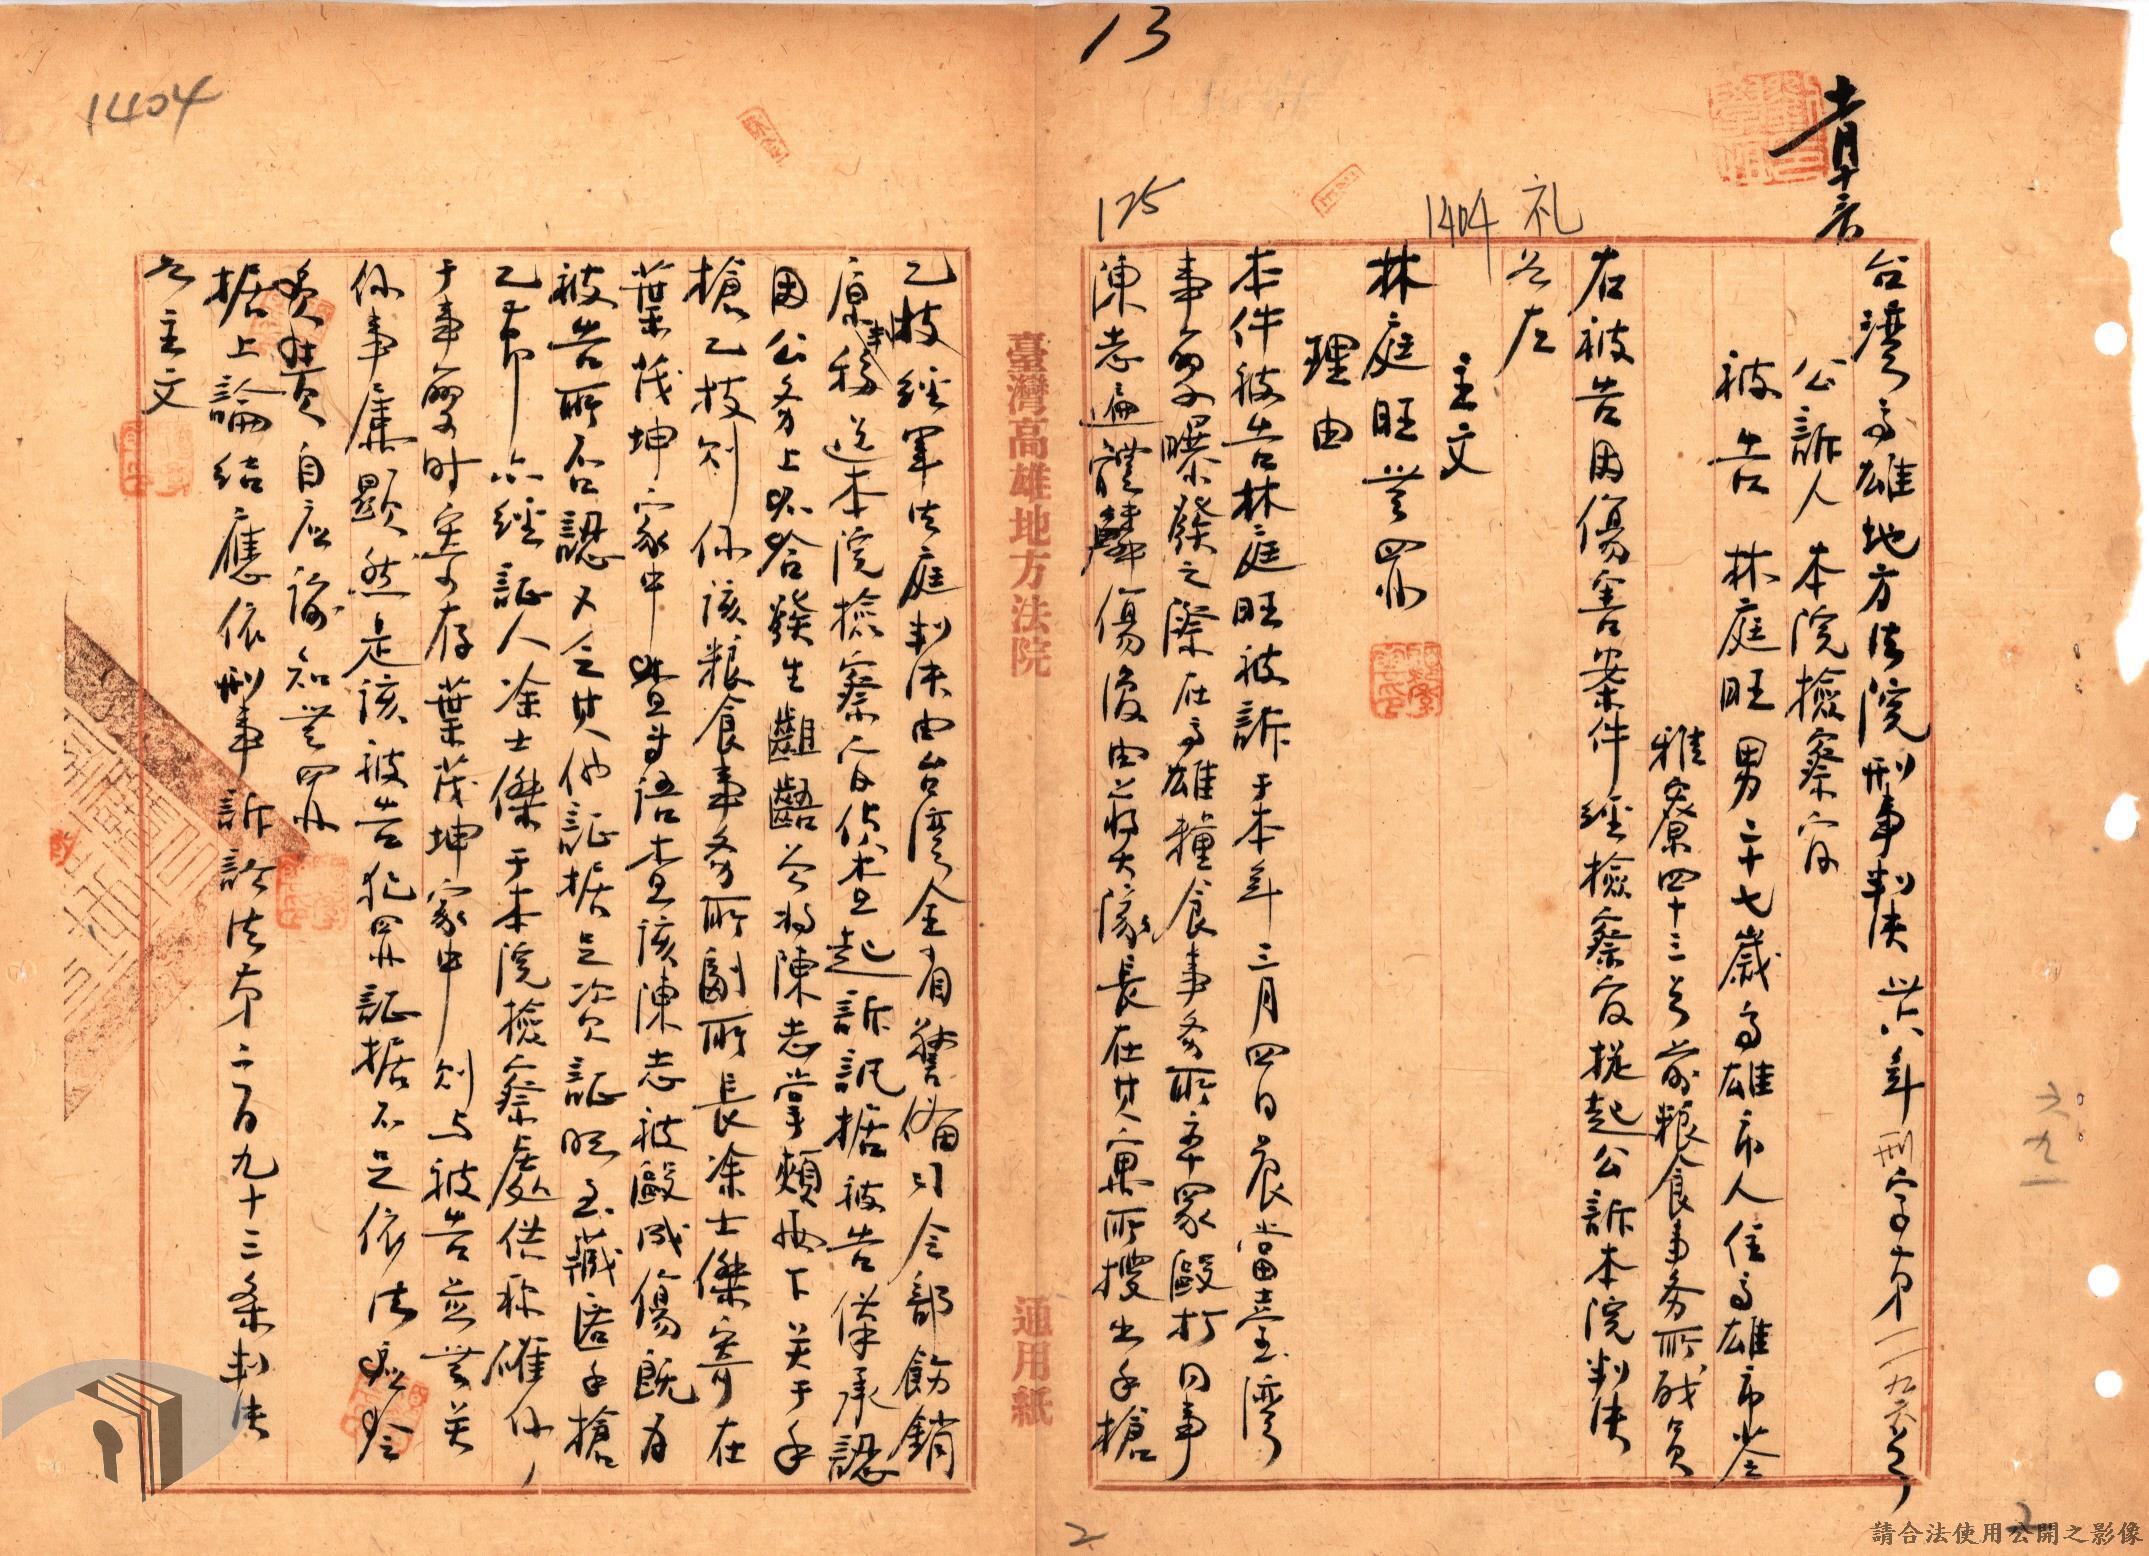 13
1404
125
1404 礼
十一月十二日
台灣高雄地方法院刑事判決 卅六年刑字第一一九六号
公訴人 本院檢察官
被告 林庭旺 男 二十七歲 高雄市人 住高雄市苓
雅寮四十三号 前粮食事务所職員
右被告因傷害案件經檢察官提起公訴本院判決
如左
主文
林庭旺無罪
理由
本件被告林庭旺被訴于本年三月四日晨當臺灣
事變爆發之際在高雄糧食事务所率眾毆打同事
陳志遍體鱗傷後由蔣大隊長在其寓所搜出手槍
乙枝經軍法庭判決由台湾全省警備司令部飭銷
原判移送本院檢察官偵查起訴訊据被告僅承認
因公务上不合發生齟齬曾将陳志掌頰兩下关于手
槍乙枝则係该粮食事务所副所長涂士傑寄在
葉茂坤家中等語查该陳志被毆成傷既为
被告所否認又無其他証据足資証明至藏匿手槍
乙節亦經証人涂士傑于本院檢察處供称確係
于事變时寄存葉茂坤家中则与被告並無关
係事處顯然是该被告犯罪証据不足依法應
負責自应諭知無罪
据上論結應依刑事訴訟法第二百九十三条判決
如主文
臺灣高雄地方法院
通用紙
六九一
2
2
請合法使用公開之影像